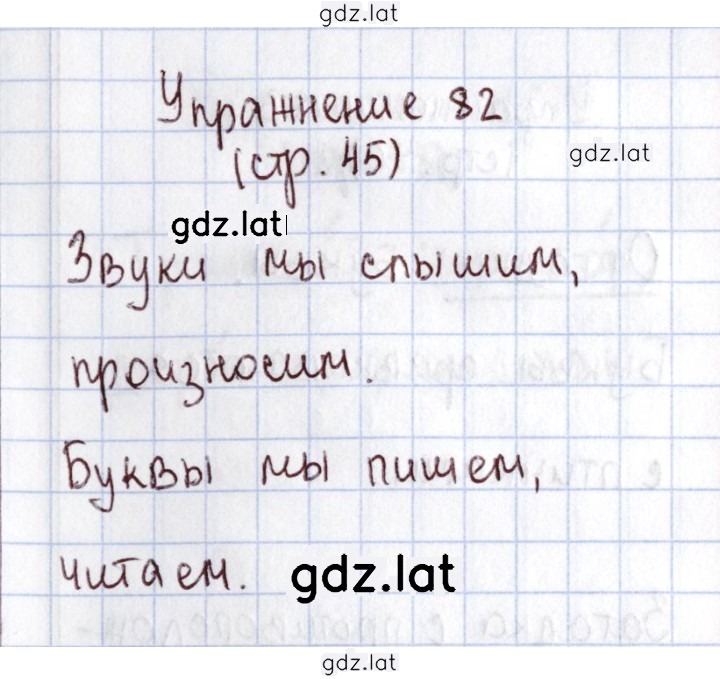 gdz.lat
Упражнение 82
(стр. 45)
gdz.lat
gdz.lat
Звуки мы слышим,
произносим.
Буквы мы пишем,
читаем.
gdz.lat
gdz.lat